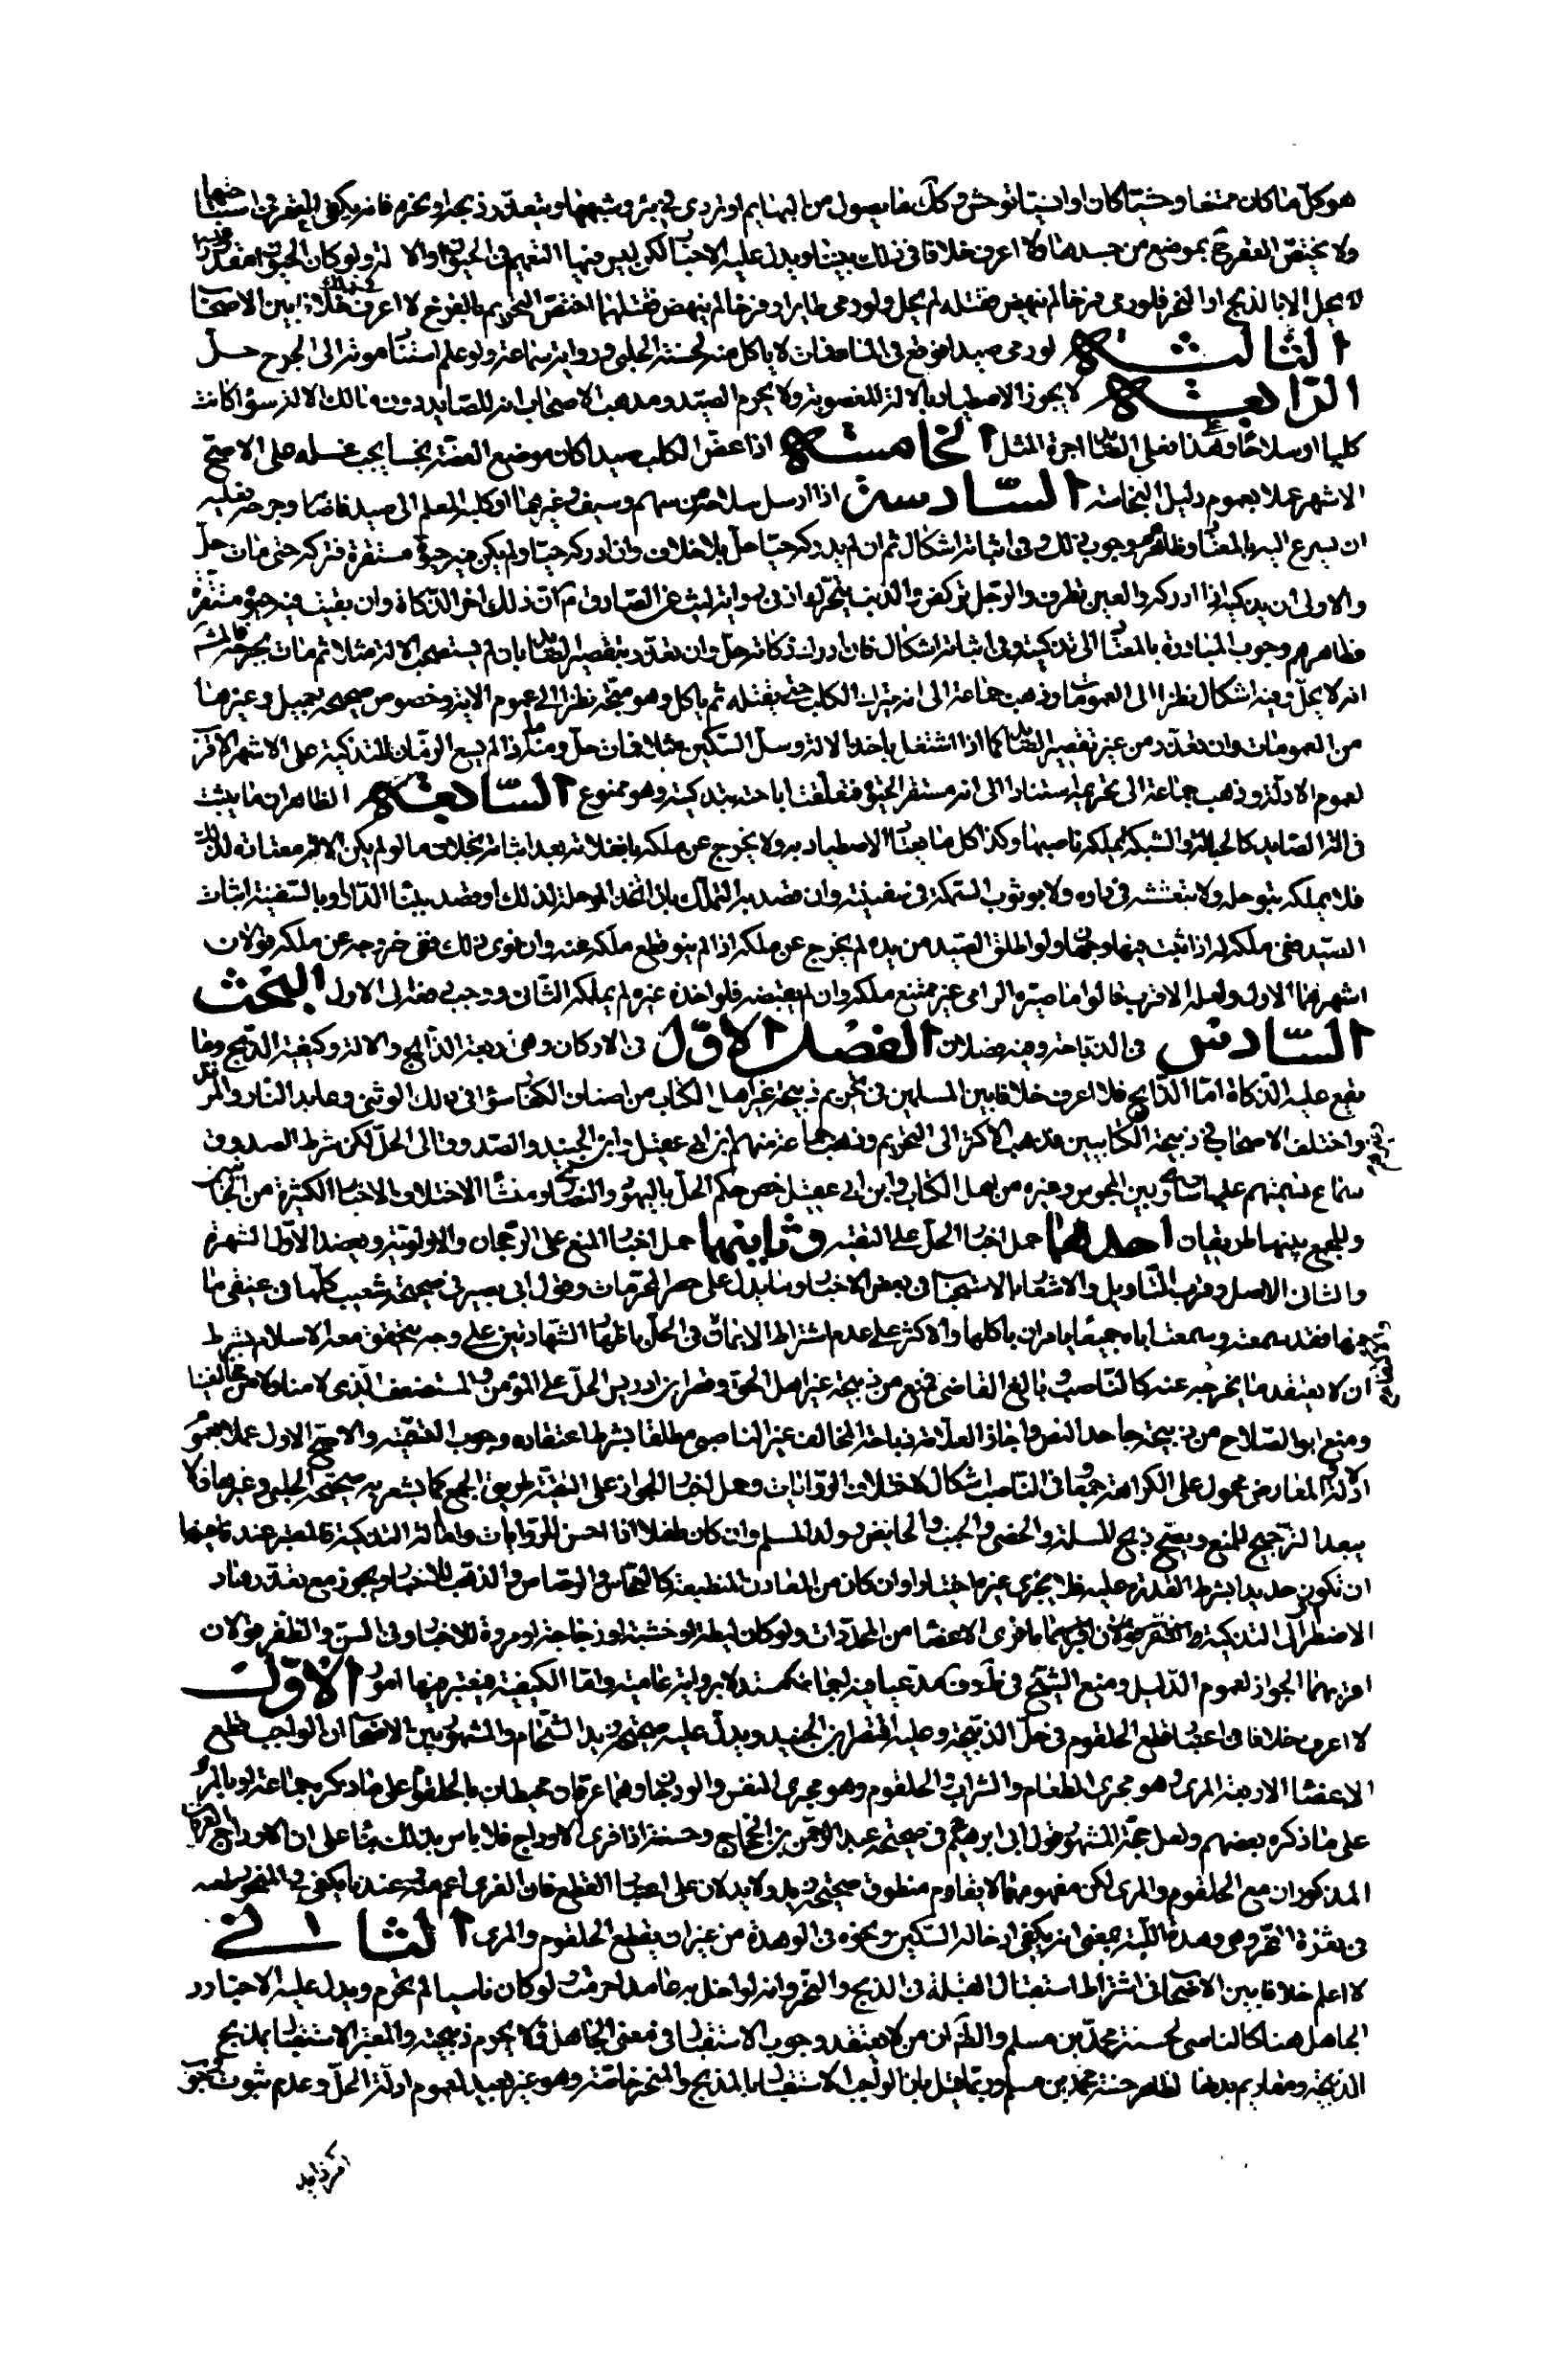 هو كلّ ما كان ممتنعا وحشيّا كان او انسيّا توحش وكك ما يصول من البهايم او تردى في بئر وشبهها ويتعذّر ذبحه او نحره فانه يكفى العقر في استباحتها
ولا يختصّ العقر ح بموضع من جسدها ولا اعرف خلافا في ذلك بيننا ويدل عليه الاخبار لكن ليس فيها التعميم في الحيوان والالة ولو كان الحيوان غير ممتنع
لا يحل الا بالذبح او النحر فلو رمى فرخا لم ينهض فقتله لم يحل ولو رمى طايرا وفرخا لم ينهض فقتلهما اختصّ التحريم بالفرخ لا اعرف خلافا في ذلك بين الاصحاب
الثالثة لو رمى صيدا فوقع في الماء فمات لا ياكل منه لحسنة الحلبى ورواية سماعة ولو علم استناد موته الى الجرح حل
الرابعة لا يجوز الاصطياد بالالة المغصوبة ولا يحرم الصيد ومذهب الاصحاب انه للصايد دون مالك الالة سواء كانت
كلبا او سلاحا وعلى هذا فعلى الصايد اجرة المثل الخامسة اذا عضّ الكلب صيدا كان موضع العضّة نجسا يجب غسله على الاصحّ
الاشهر عملا بعموم دليل النجاسة السادسة اذا ارسل سلاحه من سهم وسيف وغيرهما او كلبه المعلم الى صيد فاصابه وجرحه فعليه
ان يسرع اليه بالمعتاد وظاهرهم وجوب ذلك وفي اثباته اشكال ثم ان لم يدركه حيّا حلّ بلا خلاف وان ادركه حيّا ولم يكن فيه حيوة مستقرة فتركه حتى مات حلّ
والاولى ان يذكيه اذا ادركه والعين تطرف والرجل تركض والذنب يتحرّك اذ في رواية ليث عن الصادق ع ان ذلك اخر الذكاة وان بقيت فيه حيوة مستقرة
فظاهرهم وجوب المبادرة بالمعتاد الى تذكيته وفي اثباته اشكال فان ادرك ذكاته حلّ وان تعذّر بتقصير الصايد بان لم يستصحب الالة مثلا ثم مات بجرحه فالمشهور
انه لا يحلّ وفيه اشكال نظرا الى العمومات وذهب جماعة الى انه يترك الكلب حتى يقتله ثم ياكل وهو متّجه نظرا الى عموم الاية وخصوص صحيحة جميل وغيرها
من العمومات وان تعذّر من غير تقصير الصايد كما اذا اشتغل باخذ الالة وسلّ السكّين مثلا فمات حلّ ومثله اذا لم يسع الزمان للتذكية على الاشهر الاقرب
لعموم الادلة وذهب جماعة الى تحريمه استنادا الى انه مستقر الحيوة فتعلّقت اباحته بتذكيته وهو ممنوع السابعة الظاهر ان ما يثبت
في الة الصايد كالحبالة والشبكة يملكه ناصبها وكذا كل ما يعتاد الاصطياد به ولا يخرج عن ملكه بانفلاته بعد اثباته بخلاف ما لو لم يكن الالة معتادة لذلك
فلا يملكه بتوحله ولا بتعشيشه في داره ولا بوثوب السمكة في سفينته وان قصد به التملك بان اتخذ الموحلة لذلك او قصد ببناء الدار او بالسفينة اثبات
الصيد ففى ملكه له اذا ثبت فيها وجهان ولو اطلق الصيد من يده لم يخرج عن ملكه اذا لم ينو قطع ملكه عنه وان نوى ذلك ففى خروجه عن ملكه قولان
اشهرهما الاول ولعله الاقرب قالوا ما صيّره الرامى غير ممتنع ملكه وان لم يقبضه فلو اخذه غيره لم يملكه الثانى ووجب دفعه الى الاول البحث
السادس في الذباحة وفيه فصلان الفصل الاوّل في الاركان وهى ربعة الذابح والالة وكيفية الذبح وما
يقع عليه الذكاة امّا الذابح فلا اعرف خلافا بين المسلمين في تحريم ذبيحة غير اهل الكتاب من اصناف الكفار سواء في ذلك الوثنى وعابد النار والمرتد
واختلف الاصحاب في ذبيحة الكتابيين فذهب الاكثر الى التحريم وذهب جماعة منهم ابن ابى عقيل وابن الجنيد والصدوق الى الحلّ لكن شرط الصدوق
سماع تسميتهم عليها وساوى بين المجوس وغيره من اهل الكتاب وابن ابى عقيل خص حكم الحلّ باليهود والنصارى ومنشأ الاختلاف الاخبار الكثيرة من الجانبين
وللجمع بينهما طريقان احدهما حمل اخبار الحلّ على التقيّة وثانيهما حمل اخبار المنع على الرجحان والاولوية ويعضد الاوّل الشهرة
والثانى الاصل وقرب التاويل والاشعار بالاستحباب في بعض الاخبار وما يدل على حصر المحرمات وقول ابى بصير في صحيحة شعيب كلها في عنقى ما
فيها فقد سمعته وسمعت اباه جميعا يامران باكلها والاكثر على عدم اشتراط الايمان في الحلّ باظهار الشهادتين على وجه يتحقق معه الاسلام بشرط
ان لا يعتقد ما يخرجه عنه كالناصب وبالغ القاضى فمنع من ذبيحة غير اهل الحق وقصر ابن ادريس الحلّ على المؤمن والمستضعف الذى لا منا ولا من مخالفينا
ومنع ابو الصلاح من ذبيحة جاحد النص واجاز العلامة ذباحة المخالف غير الناصبى مطلقا بشرط اعتقاده وجوب التسمية والاصح الاول عملا بعموم
الادلة والمعارض محمول على الكراهة جمعا وفي الناصب اشكال لاختلاف الروايات وحمل اخبار الجواز على التقية طريق الجمع كما يشعر به صحيحة الحلبى وغيرها فلا
يبعد الترجيح للمنع ويصحّ ذبح المسلمة والخصى والجنب والحايض وولد المسلم وان كان طفلا اذا احسن للروايات واما الة التذكية فالمعتبر عند قاصيها
ان تكون حديدا بشرط القدرة عليه فلا يجزى غيره اختيارا وان كان من المعادن المنطبعة كالنحاس والرصاص والذهب للاخبار ويجوز مع تعذرها و
الاضطرار الى التذكية بما فرى الاعضاء من المحدّدات ولو كان ليطة او خشبة او زجاجة او مروة للاخبار وفي السنّ والظفر قولان
اقربهما الجواز لعموم الدليل ومنع الشيخ في ف مدّعيا فيه اجماعنا مستدلا برواية عامية وامّا الكيفية فيعتبر فيها امور الاوّل
لا اعرف خلافا في اعتبار قطع الحلقوم في حلّ الذبيحة وعليه اقتصر ابن الجنيد ويدلّ عليه صحيحة زيد الشحّام والمشهور بين الاصحاب ان الواجب قطع
الاعضاء الاربعة المرى وهو مجرى الطعام والشراب والحلقوم وهو مجرى النفس والودجان وهما عرقان محيطان بالحلقوم على ما ذكره جماعة او بالمرى
على ما ذكره بعضهم ولعل حجة المشهور قول ابى ابراهيم في صحيحة عبد الرحمن بن الحجاج وحسنته اذا فرى الاوداج فلا باس بذلك بناء على ان الاوداج العرقان
المذكوران مع الحلقوم والمرى لكن مفهومهما لا يقاوم منطوق صحيحة زيد ولا يدلان على اعتبار القطع فان الفرى اعم منه وعندنا يكفى في المنحور طعنه
في ثغرة النحر وهى وهدة اللبّة بمعنى انه يكفى ادخال السكين ونحوه في الوهدة من غير ان يقطع الحلقوم والمرى الثانى
لا اعلم خلافا بين الاصحاب في اشتراط استقبال القبلة في الذبح والنحر وانه لو اخل به عامدا حرمت ولو كان ناسيا لم تحرم ويدل عليه الاخبار و
الجاهل هنا كالناسى لحسنة محمد بن مسلم والظ ان من لا يعتقد وجوب الاستقبال في معنى الجاهل فلا يحرم ذبيحته والمعتبر الاستقبال بمذبح
الذبيحة ومقاديم بدنها لظاهر حسنة محمد بن مسلم وربما قيل بان الواجب الاستقبال بالمذبح والمنحر خاصة وهو غير بعيد لعموم ادلة الحلّ وعدم ثبوت وجوب